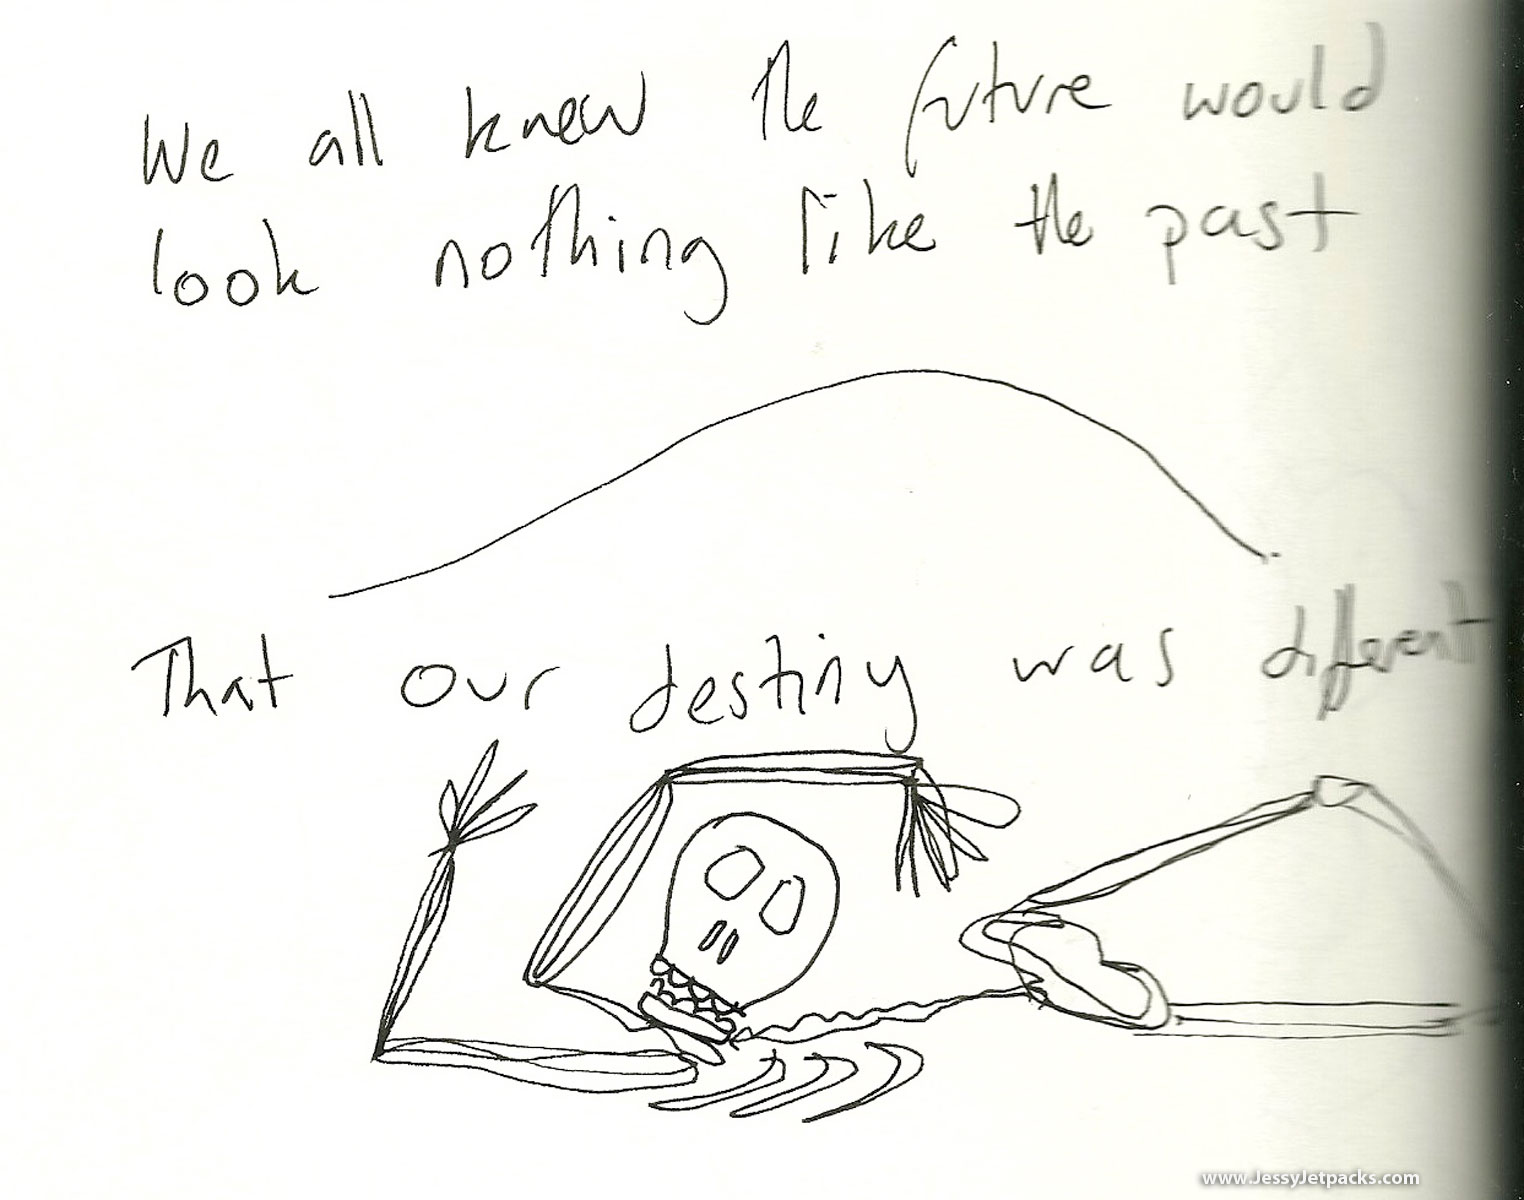 We all knew the future would
look nothing like the past
That our destiny was different
www.JessyJetpacks.com